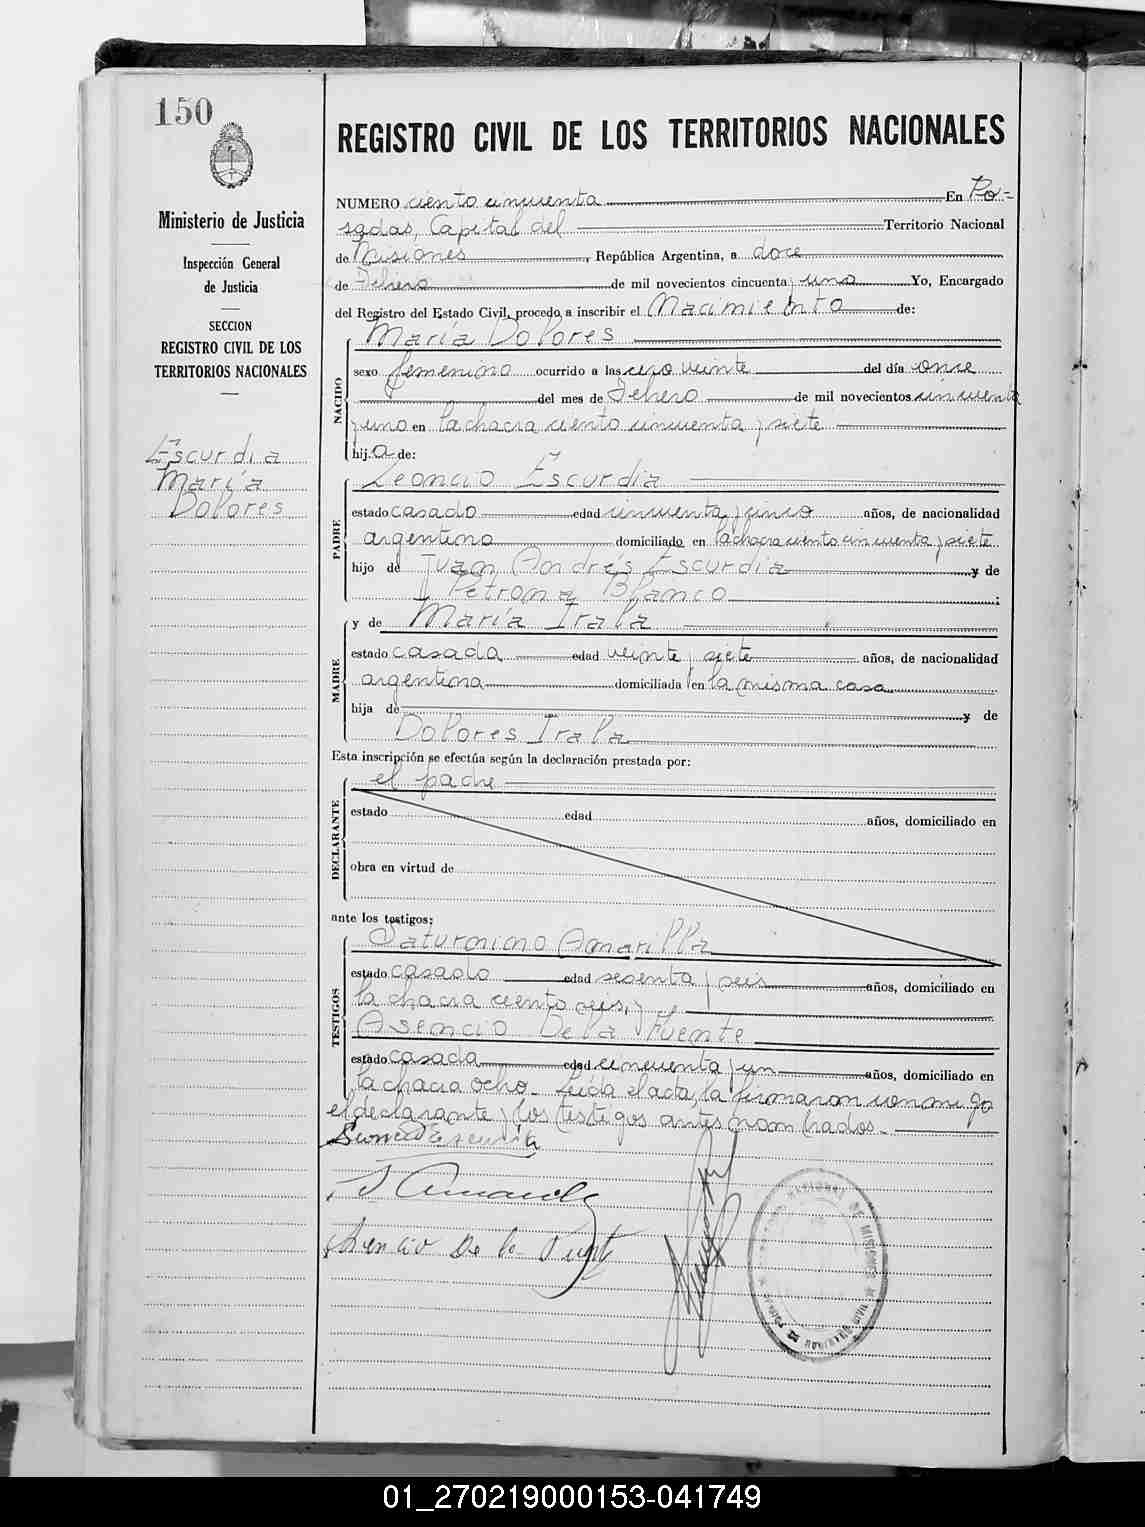 150
Ministerio de Justicia
Inspección General
de Justicia
SECCION
REGISTRO CIVIL DE LOS
TERRITORIOS NACIONALES
Escurdia
María
Dolores
REGISTRO CIVIL DE LOS TERRITORIOS NACIONALES
NUMERO ciento cincuenta En Po-
sadas, Capital del Territorio Nacional
de Misiones, República Argentina, a doce
de Febrero de mil novecientos cincuenta y uno Yo, Encargado
del Registro del Estado Civil, procedo a inscribir el Nacimiento de:
María Dolores
NACIDO
sexo femenino ocurrido a las cero veinte del día once
del mes de Febrero de mil novecientos cincuenta
y uno en la chacra ciento cincuenta y siete
hija de:
Leoncio Escurdia
PADRE
estado casado edad cincuenta y cinco años, de nacionalidad
argentina domiciliado en la chacra ciento cincuenta y siete
hijo de Juan Andrés Escurdia y de
Petrona Blanco;
y de María Irala
MADRE
estado casada edad veinte y siete años, de nacionalidad
argentina domiciliada en la misma casa
hija de y de
Dolores Irala
Esta inscripción se efectúa según la declaración prestada por:
el padre
DECLARANTE
estado edad años, domiciliado en
obra en virtud de
ante los testigos:
Saturnino Amarilla
TESTIGOS
estado casado edad sesenta y seis años, domiciliado en
la chacra ciento seis, y
Asencio De la Fuente
estado casada edad cincuenta y un años, domiciliado en
la chacra ocho. Leída el acta, la firmaron conmigo
el declarante y los testigos antes nombrados.
Leoncio Escurdia
S Amarilla
Asencio De la Fuente
NACIONAL DE MISIONES
REGISTRO CIVIL
01_270219000153-041749